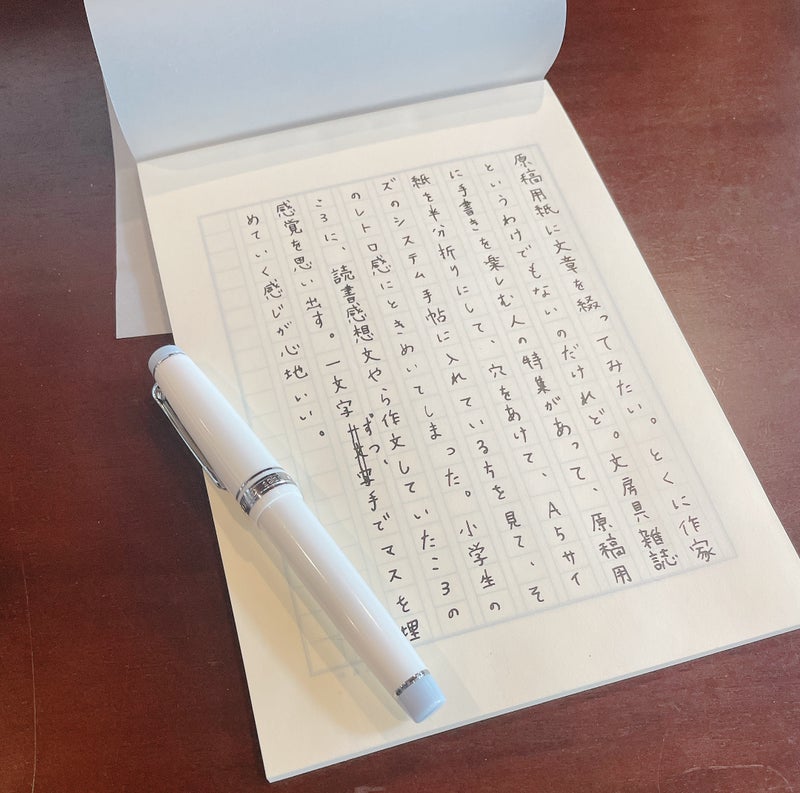 原稿用紙に文章を綴ってみたい。とくに作家
というわけでもないのだけれど。文房具雑誌
に手書きを楽しむ人の特集があって、原稿用
紙を半分折りにして、穴をあけて、A5サイ
ズのシステム手帖に入れている方を見て、そ
のレトロ感にときめいてしまった。小学生の
ころに、読書感想文やら作文していたころの
感覚を思い出す。一文字ずつ、手でマスを埋
めていく感じが心地いい。